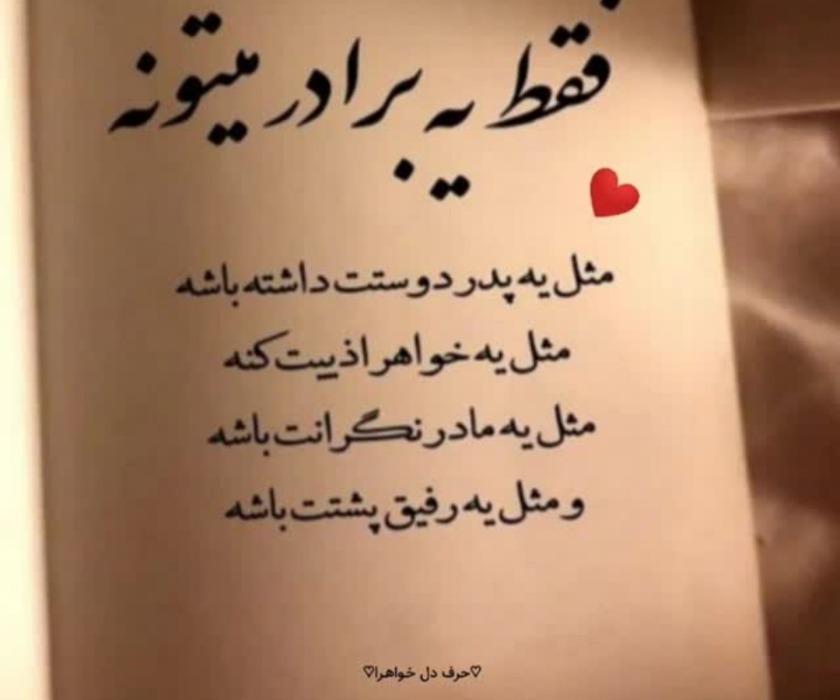 فقط یه برادر میتونه
مثل یه پدر دوستت داشته باشه
مثل یه خواهر اذییت کنه
مثل یه مادر نگرانت باشه
و مثل یه رفیق پشتت باشه
♡حرف دل خواهرا♡